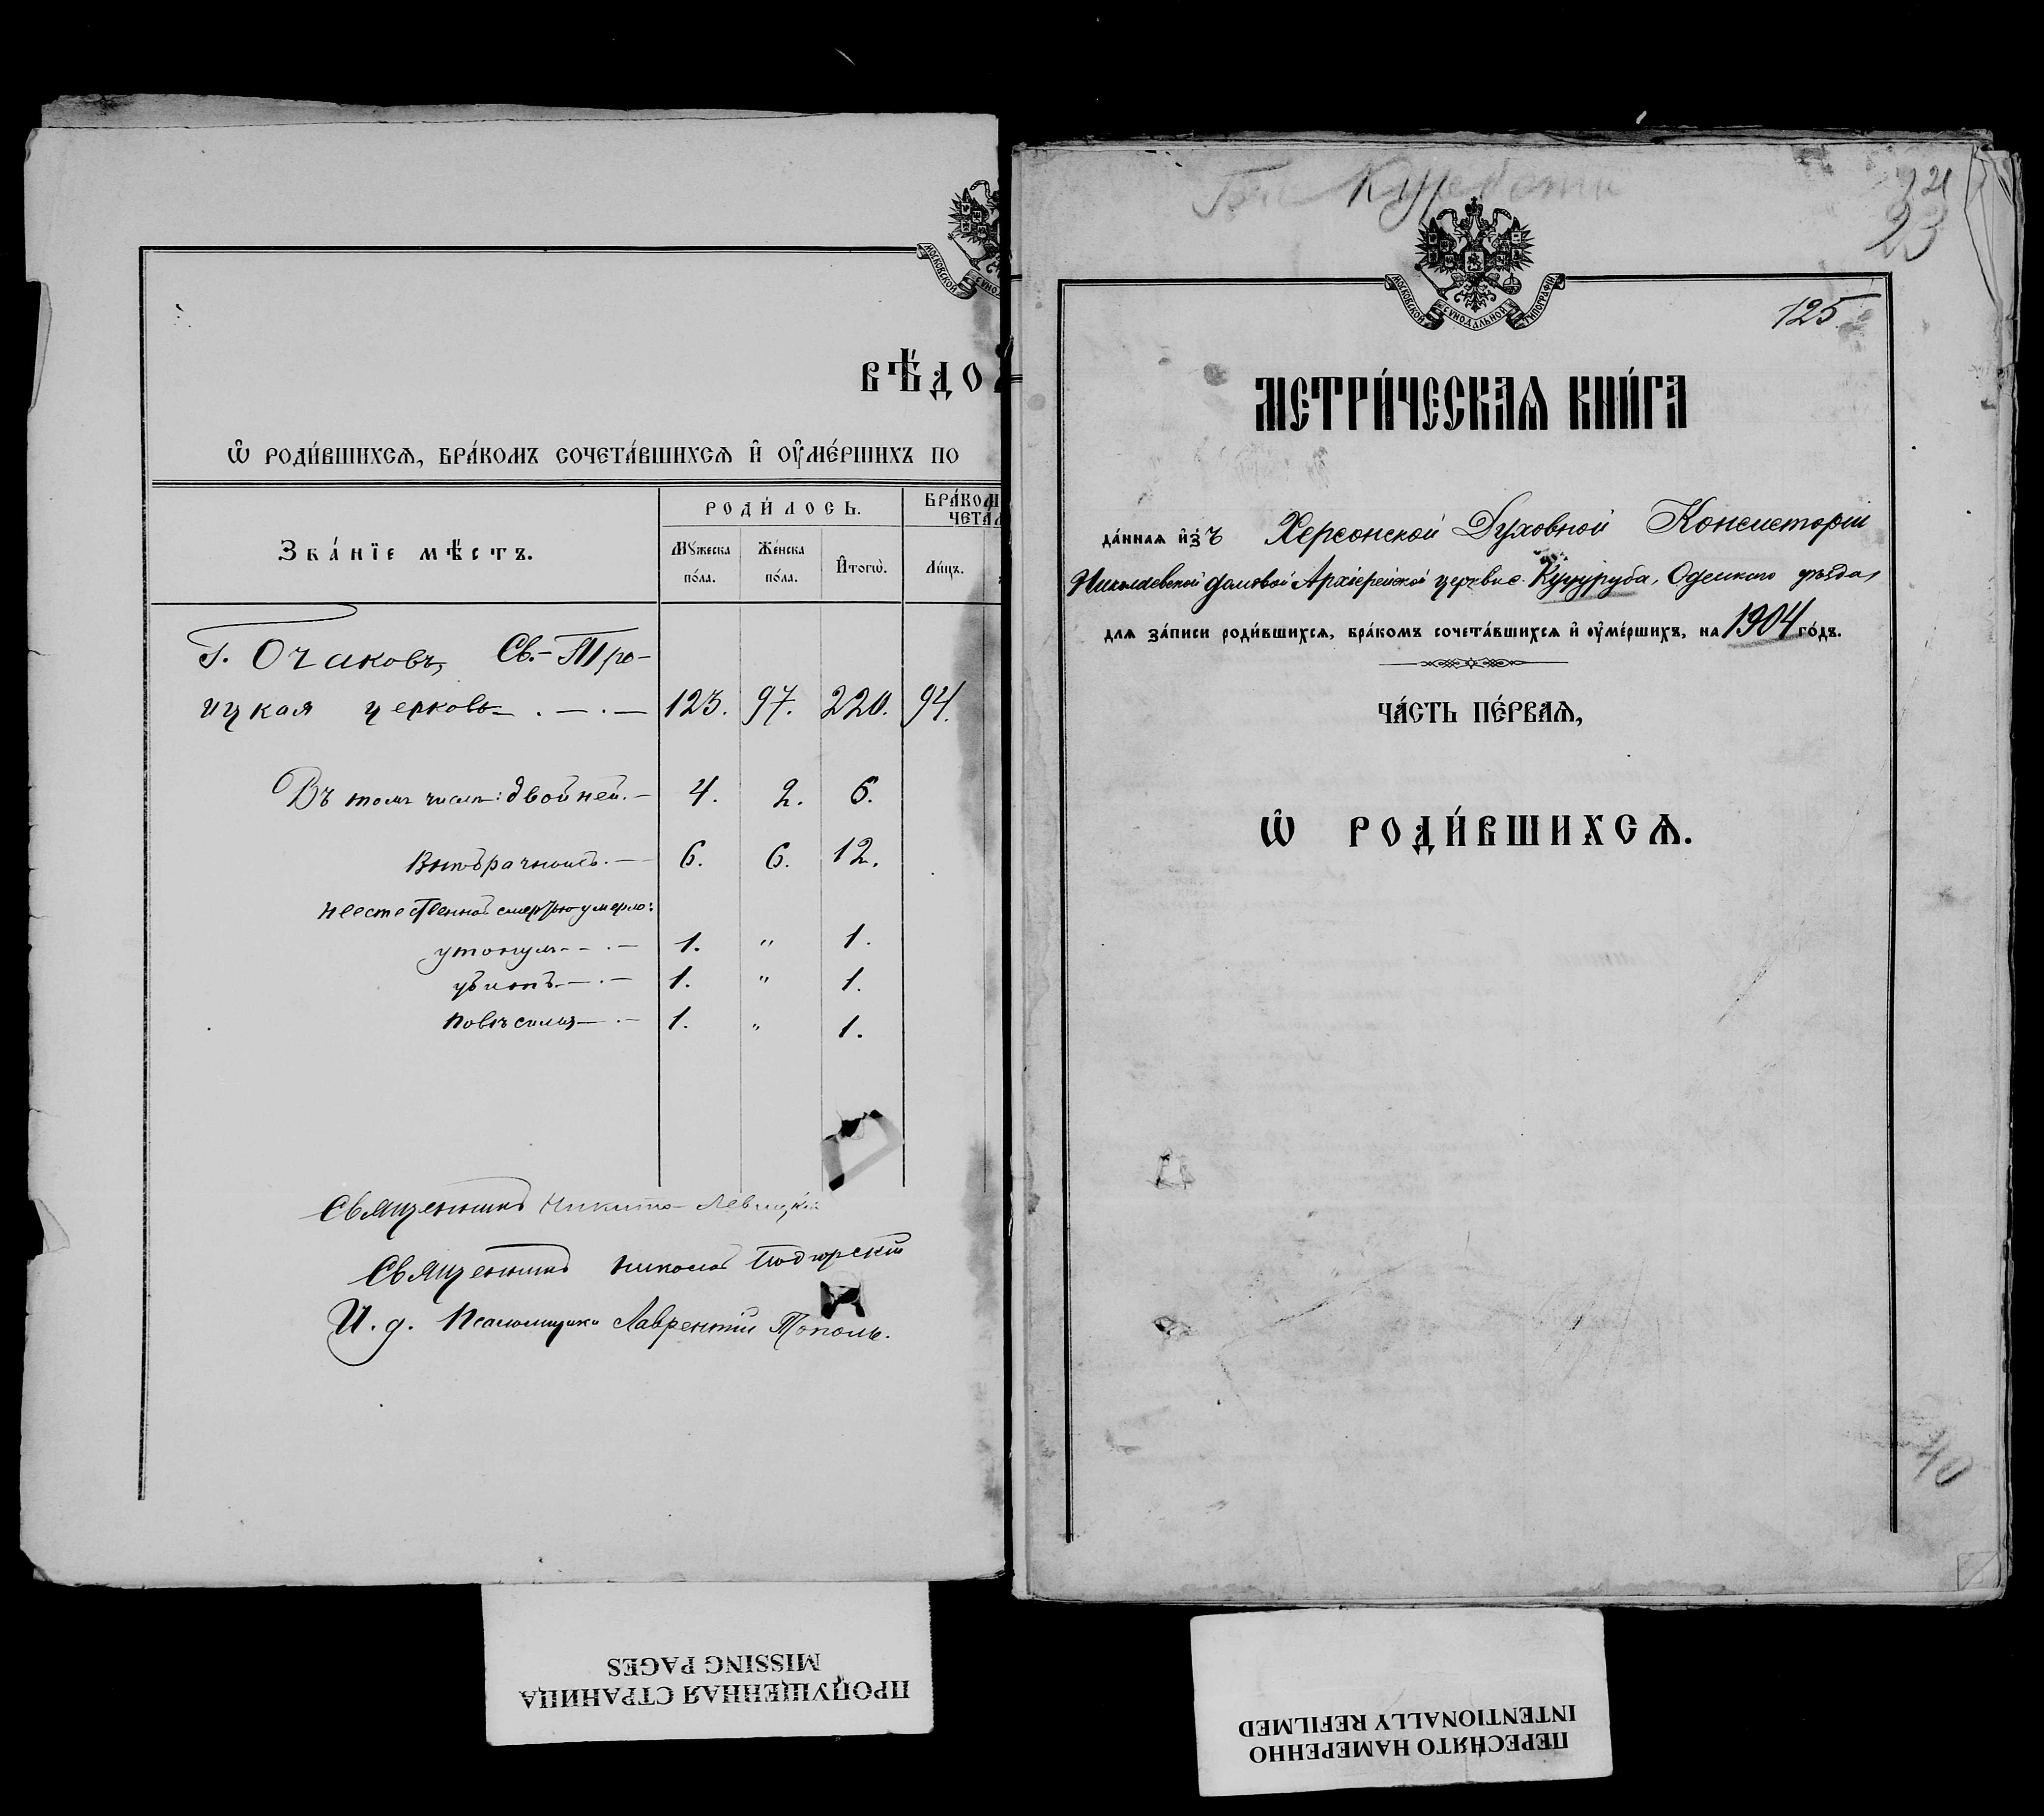 МОСКОВСКОЙ СѴНОДА
ВѢ́ДО
Ѽ РОДИ́ВШИХСѦ, БРА́КОМЪ СОЧЕТА́ВШИХСѦ И҆ ОУ҆МЕ́РШИХЪ ПО
Зва́нїе мѣ́стъ.
РОДИ́ЛОСЬ.
БРА́КОМ
ЧЕТА́Л
Мꙋ́жеска по́ла.
Же́нска по́ла.
И҆тогѡ̀.
Ли́цъ.
Г. Очаковъ, Св.-Тро-
ицкая церковь 123. 97. 220. 94.
Въ томъ числѣ: двойней. 4. 2. 6.
Внѣбрачныхъ. 6. 6. 12.
Неестественной смертью умерло:
утонулъ 1. " 1.
убитъ 1. " 1.
повѣсился 1. " 1.
Священникъ Никита Левицкій
Священникъ Николай Подгорскій
И. д. Псаломщика Лаврентій Тополь.
ПРОПУЩЕННАЯ СТРАНИЦА
MISSING PAGES
23
МОСКОВСКОЙ СѴНОДАЛЬНОЙ ТИПОГРАФІИ
125
МЕТРИ́ЧЕСКАѦ КНИ́ГА
да́нная и҆зъ Херсонской Духовной Консисторіи
Николаевской домовой Архіерейской церкви с. Куцуруба, Одесскаго уѣзда,
для за́писи роди́вшихсѧ, бра́комъ сочета́вшихсѧ и҆ оу҆ме́ршихъ, на 1904 го́дъ.
ЧА́СТЬ ПЕ́РВАѦ,
Ѽ РОДИ́ВШИХСѦ.
40
ПЕРЕСНЯТО НАМЕРЕННО
INTENTIONALLY REFILMED